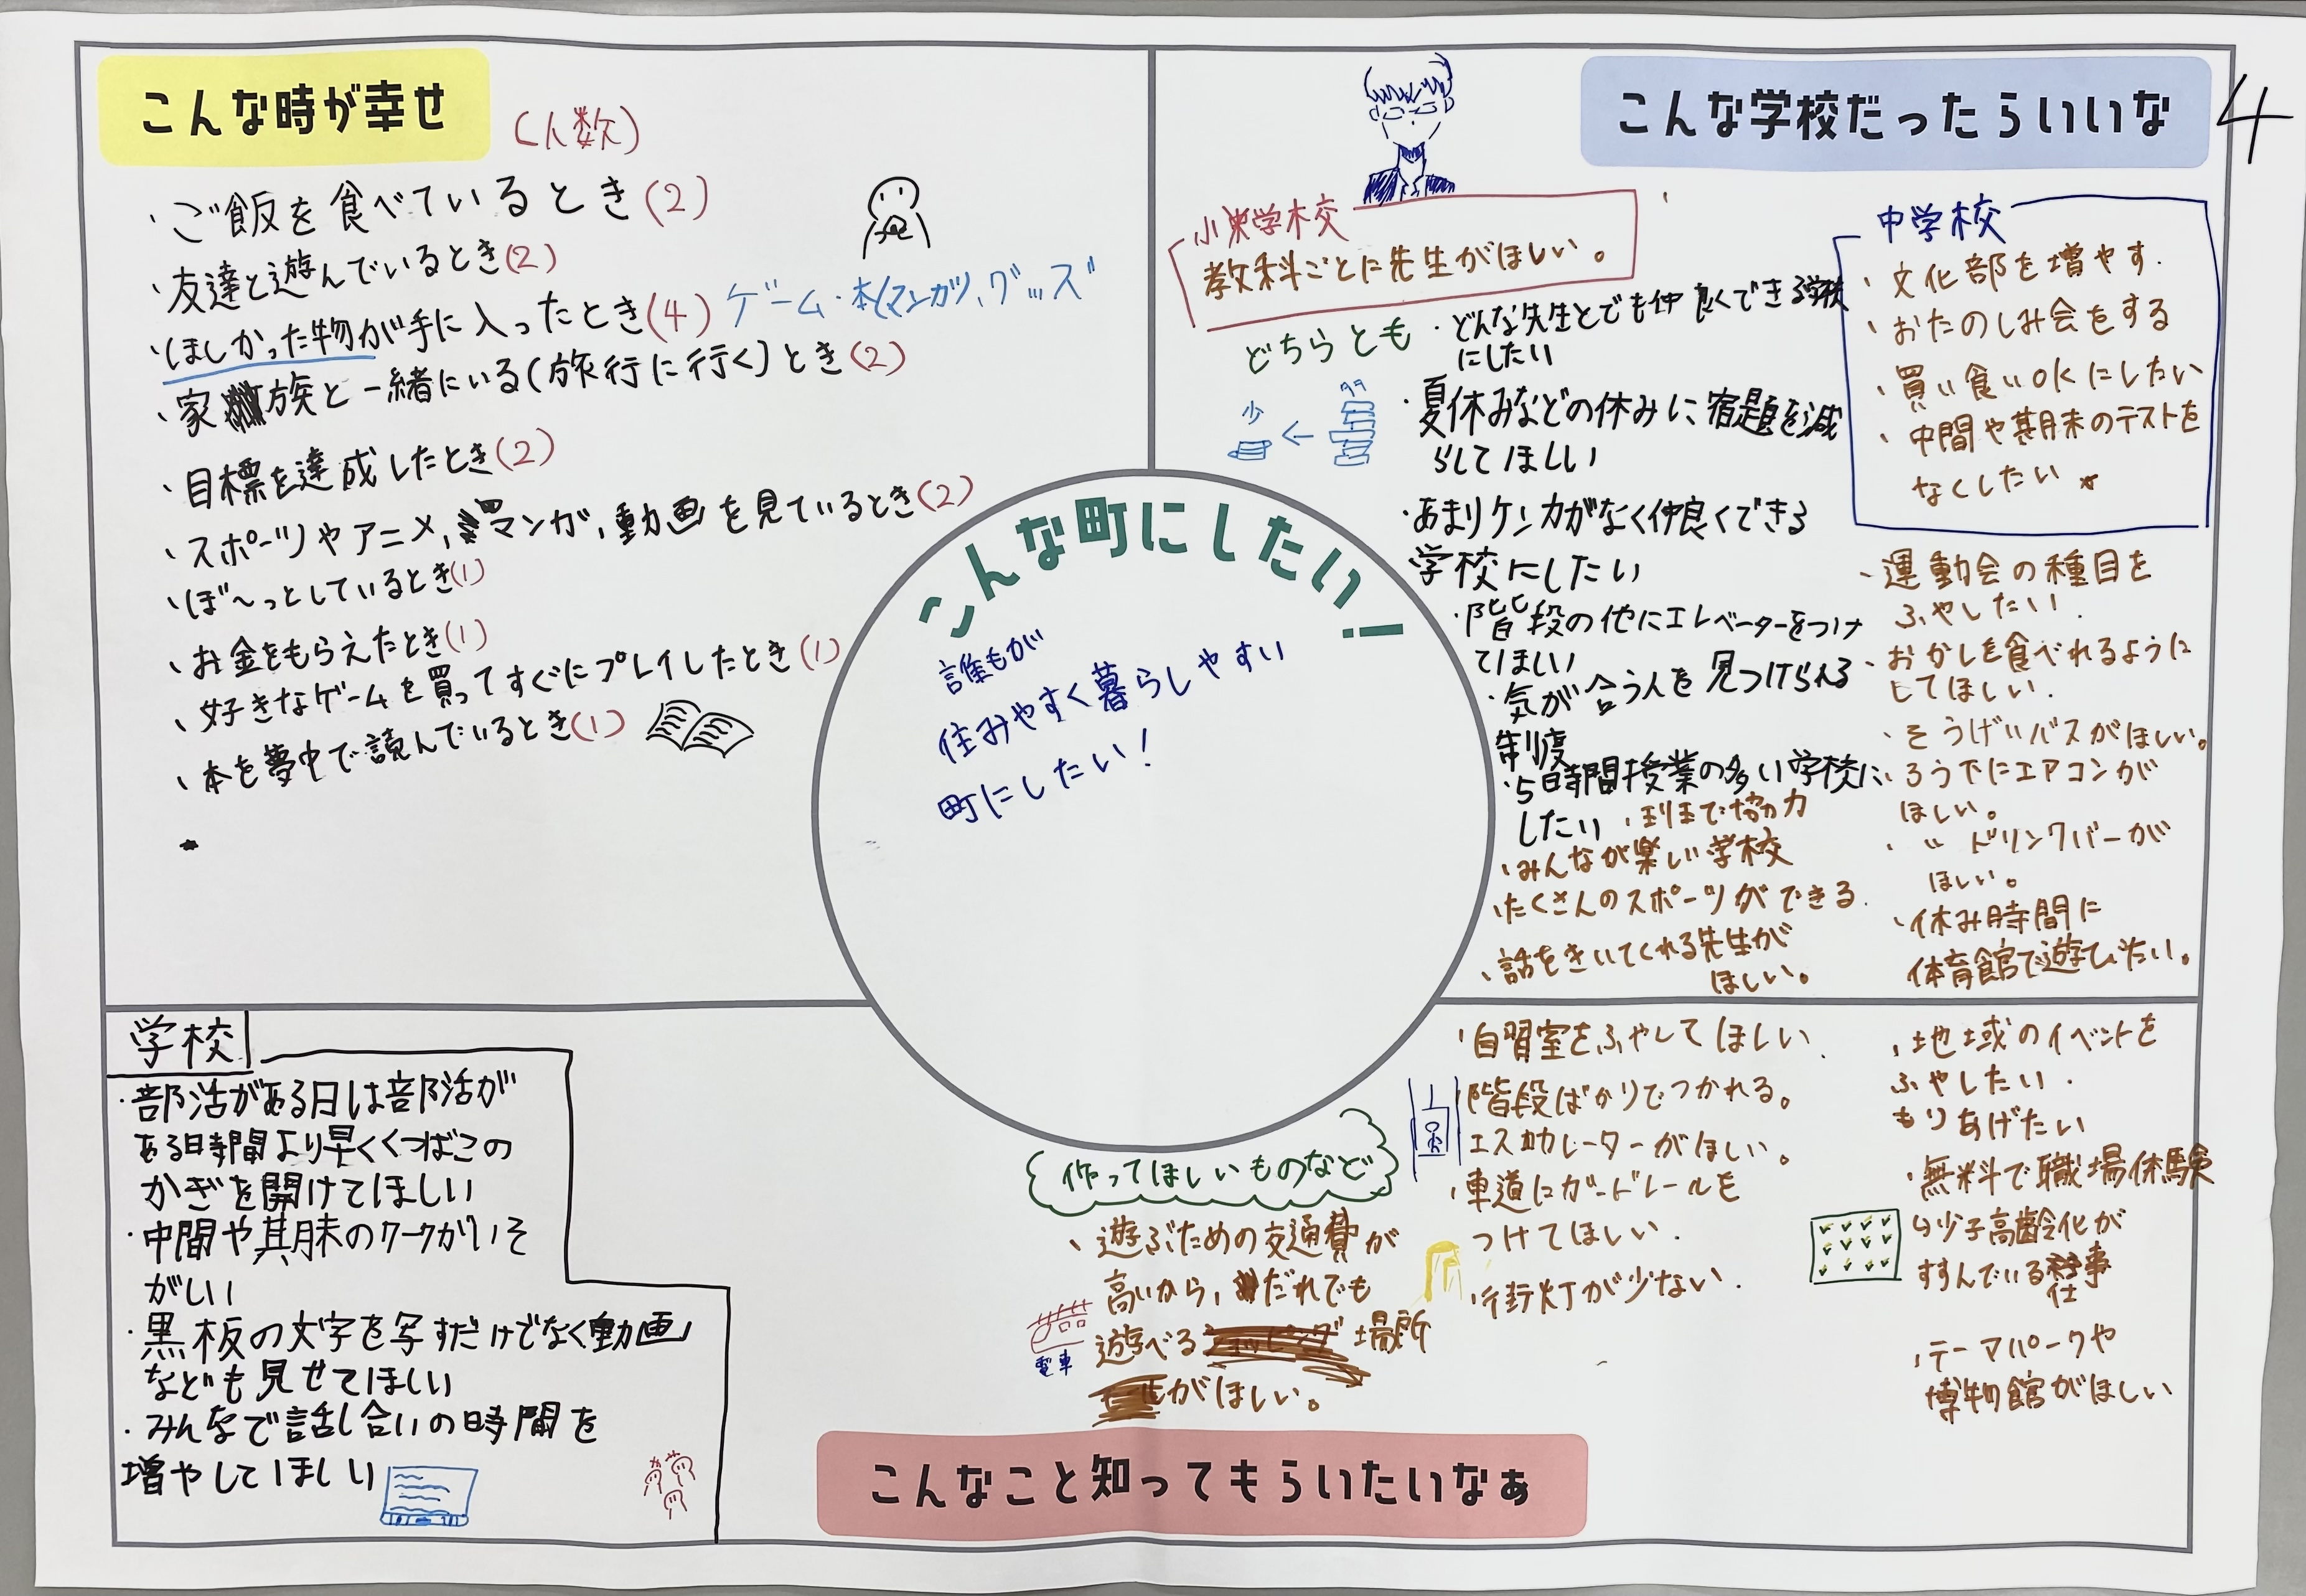 こんな時が幸せ
(人数)
・ご飯を食べているとき(2)
・友達と遊んでいるとき(2)
・ほしかった物が手に入ったとき(4) ゲーム・本(マンガ)、グッズ
・家族と一緒にいる(旅行に行く)とき(2)
・目標を達成したとき(2)
・スポーツやアニメ,マンガ,動画を見ているとき(2)
・ぼ〜っとしているとき(1)
・お金をもらえたとき(1)
・好きなゲームを買ってすぐにプレイしたとき(1)
・本を夢中で読んでいるとき(1)
こんな学校だったらいいな
4
小学校
教科ごとに先生がほしい。
どちらとも
・どんな先生とでも仲良くできる学校
にしたい
少 ←
・夏休みなどの休みに宿題を減
らしてほしい
・あまりケンカがなく仲良くできる
学校にしたい
・階段の他にエレベーターをつけ
てほしい
・気が合う人を見つけられる
制度
・5時間授業の多い学校に
したい
・班で協力
・みんなが楽しい学校
・たくさんのスポーツができる.
・話をきいてくれる先生が
ほしい。
中学校
・文化部を増やす.
・おたのしみ会をする
・買い食いOKにしたい
・中間や期末のテストを
なくしたい
・運動会の種目を
ふやしたい.
・おかしを食べれるように
してほしい.
・そうげいバスがほしい。
・ろう下にエアコンが
ほしい。
・〃 ドリンクバーが
ほしい。
・休み時間に
体育館で遊びたい。
こんな町にしたい!
誰もが
住みやすく暮らしやすい
町にしたい!
学校
・部活がある日は部活が
ある時間より早くくつばこの
かぎを開けてほしい
・中間や期末のワークがいそ
がしい
・黒板の文字を写すだけでなく動画
なども見せてほしい
・みんなで話し合いの時間を
増やしてほしい
作ってほしいものなど
・遊ぶための交通費が
高いから,だれでも
遊べる場所
がほしい。
電車
・自習室をふやしてほしい.
・階段ばかりでつかれる。
エスカレーターがほしい。
・車道にガードレールを
つけてほしい.
・街灯が少ない.
・地域のイベントを
ふやしたい.
もりあげたい
・無料で職場体験
↳少子高齢化が
すすんでいる仕事
・テーマパークや
博物館がほしい
こんなこと知ってもらいたいなぁ